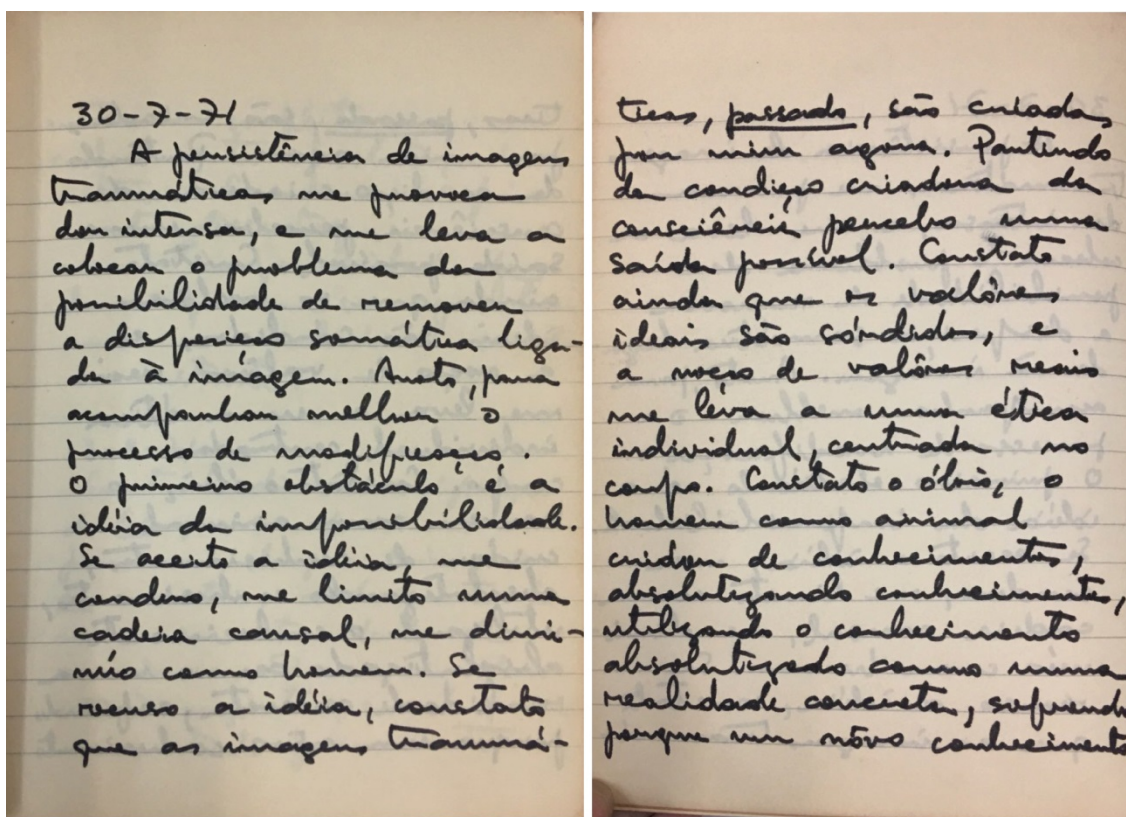 30-7-71
A persistência de imagens
traumáticas me provoca
dor intensa, e me leva a
colocar o problema da
possibilidade de remover
a disposição somática liga-
da à imagem. Anoto, para
acompanhar melhor o
processo de modificação.
O primeiro obstáculo é a
idéia da impossibilidade.
Se aceito a idéia, me
condeno, me limito numa
cadeia causal, me dimi-
núo como homem. Se
recuso a idéia, constato
que as imagens traumá-
ticas, passado, são criadas
por mim agora. Partindo
da condição criadora da
consciência percebo uma
saída possível. Constato
ainda que os valôres
ideais são sórdidos, e
a noção de valôres reais
me léva a uma ética
individual, centrada no
corpo. Constato o óbvio, o
homem como animal
criador de conhecimentos,
absolutizando conhecimentos,
utilizando o conhecimento
absolutizado como uma
realidade concreta, sofrendo
porque um nôvo conhecimento